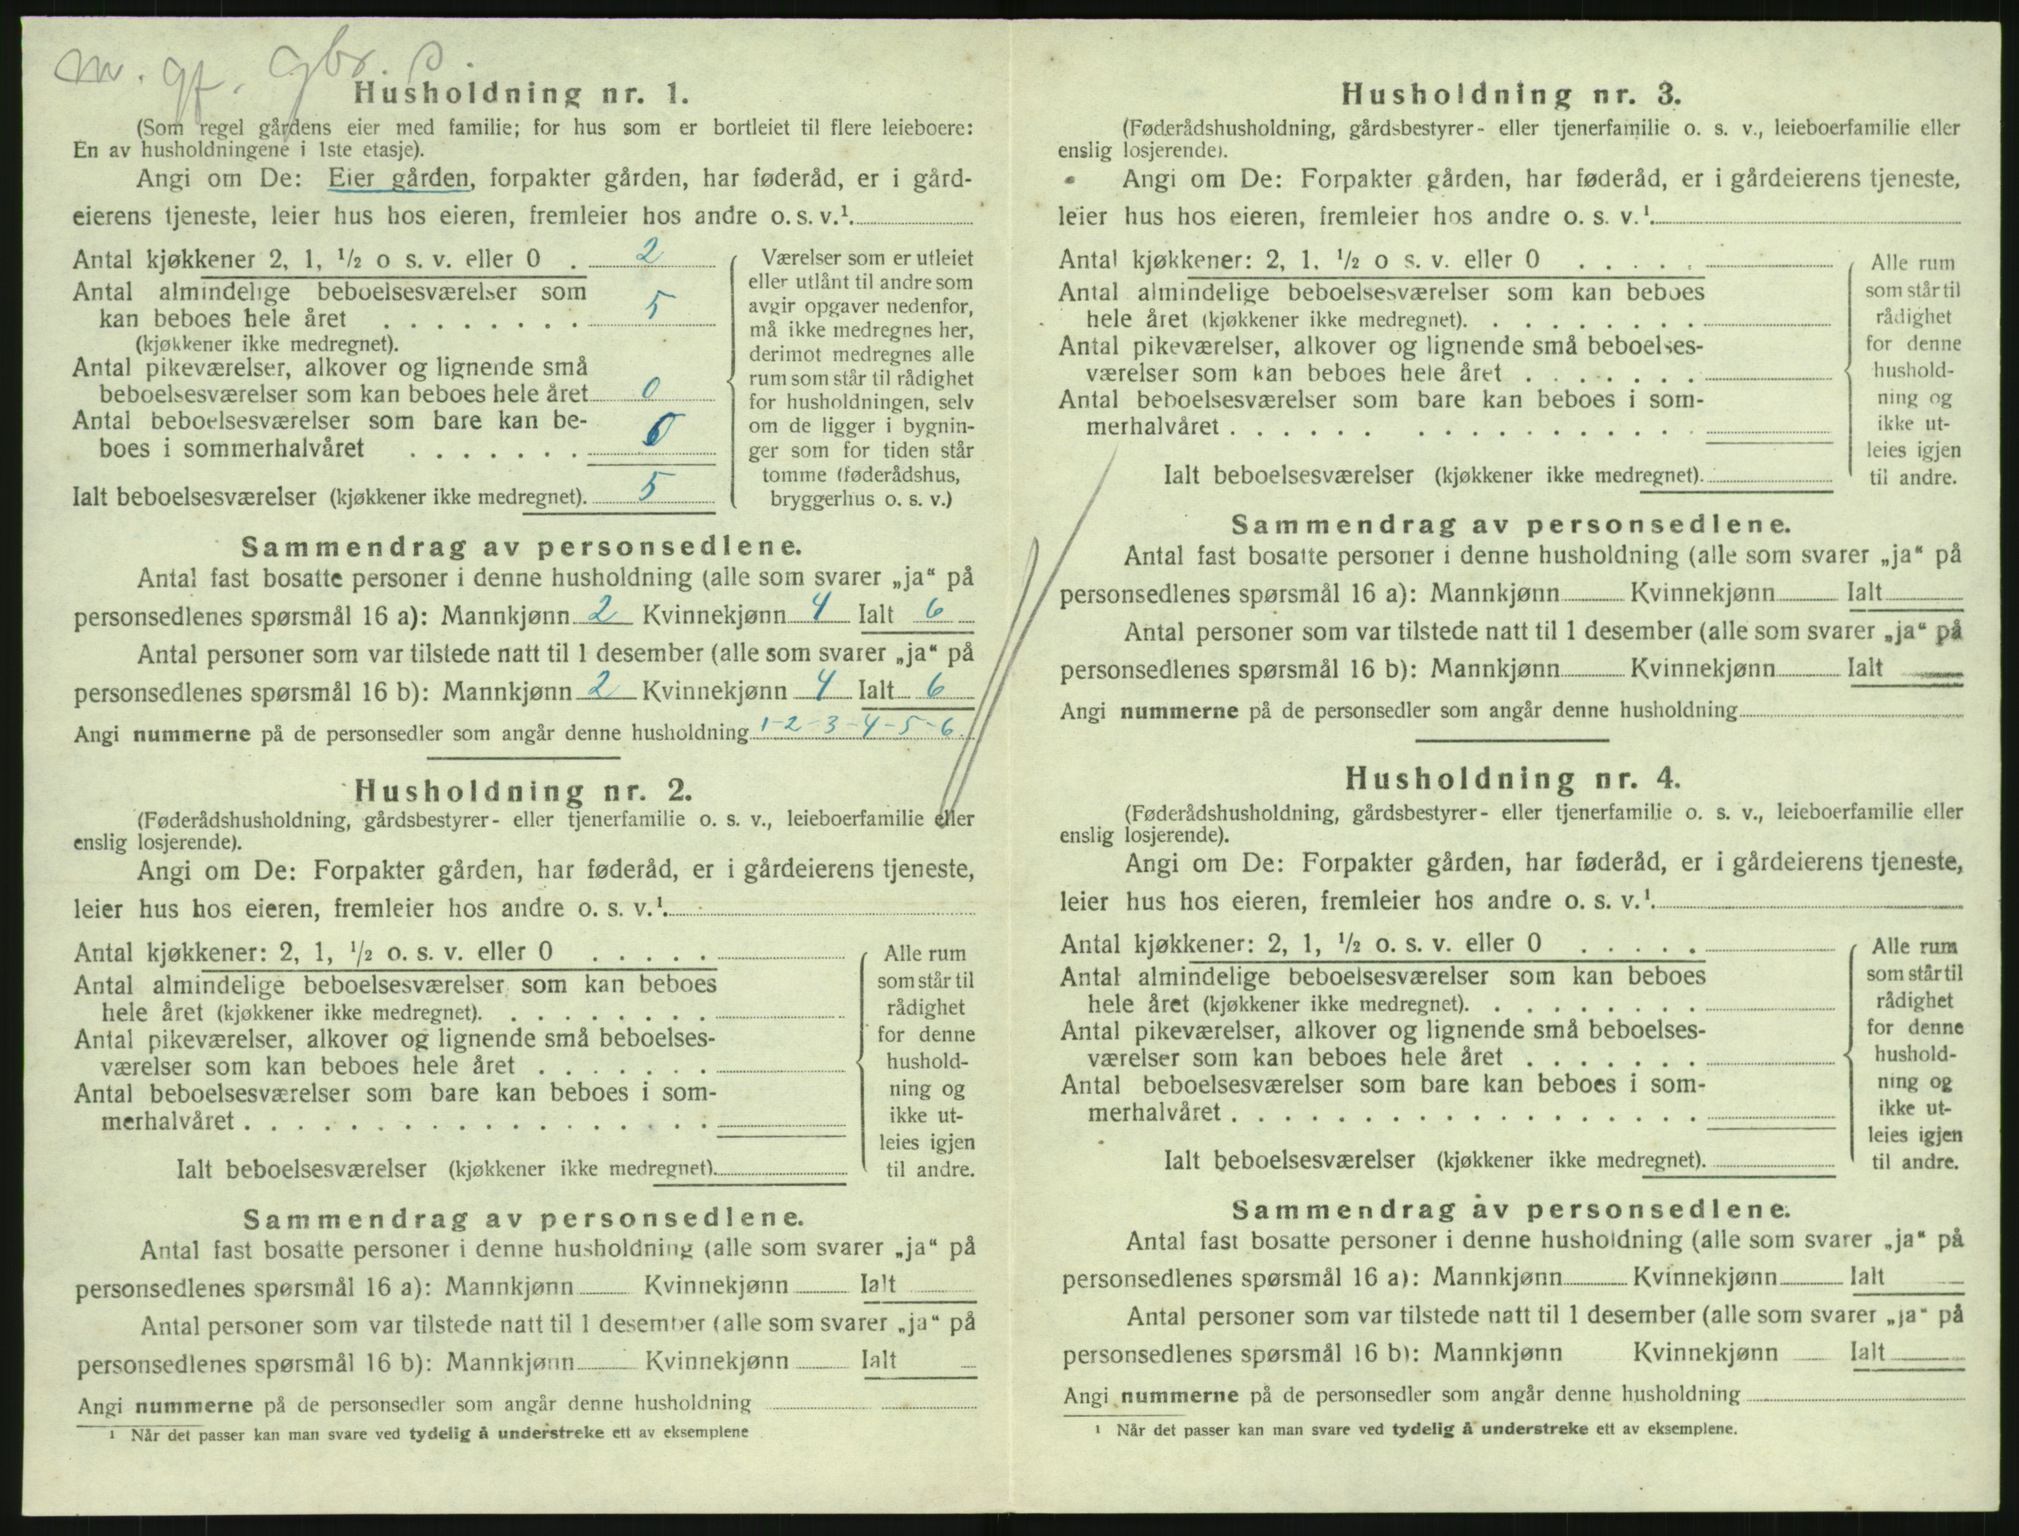 m. gf. gbr. s.
Husholdning nr. 1.
(Som regel gårdens eier med familie; for hus som er bortleiet til flere leieboere:
En av husholdningene i 1ste etasje).
Angi om De: Eier gården, forpakter gården, har føderåd, er i gård-
eierens tjeneste, leier hus hos eieren, fremleier hos andre o. s. v.¹.
Antal kjøkkener 2, 1, ½ o s. v. eller 0 . 2
Antal almindelige beboelsesværelser som
kan beboes hele året . . . . . . . . 5
(kjøkkener ikke medregnet).
Antal pikeværelser, alkover og lignende små
beboelsesværelser som kan beboes hele året 0
Antal beboelsesværelser som bare kan be-
boes i sommerhalvåret . . . . . . . 0
Ialt beboelsesværelser (kjøkkener ikke medregnet). 5
Værelser som er utleiet
eller utlånt til andre som
avgir opgaver nedenfor,
må ikke medregnes her,
derimot medregnes alle
rum som står til rådighet
for husholdningen, selv
om de ligger i bygnin-
ger som for tiden står
tomme (føderådshus,
bryggerhus o. s. v.)
Sammendrag av personsedlene.
Antal fast bosatte personer i denne husholdning (alle som svarer „ja“ på
personsedlenes spørsmål 16 a): Mannkjønn 2 Kvinnekjønn 4 Ialt 6
Antal personer som var tilstede natt til 1 desember (alle som svarer „ja“ på
personsedlenes spørsmål 16 b): Mannkjønn 2 Kvinnekjønn 4 Ialt 6
Angi nummerne på de personsedler som angår denne husholdning 1-2-3-4-5-6.
Husholdning nr. 2.
(Føderådshusholdning, gårdsbestyrer- eller tjenerfamilie o. s. v., leieboerfamilie eller
enslig losjerende).
Angi om De: Forpakter gården, har føderåd, er i gårdeierens tjeneste,
leier hus hos eieren, fremleier hos andre o. s. v.¹.
Antal kjøkkener: 2, 1, ½ o. s. v. eller 0 . . . . .
Antal almindelige beboelsesværelser som kan beboes
hele året (kjøkkener ikke medregnet). . . . . . . . .
Antal pikeværelser, alkover og lignende små beboelses-
værelser som kan beboes hele året . . . . . . .
Antal beboelsesværelser som bare kan beboes i som-
merhalvåret . . . . . . . . . . . . . . . . . .
Ialt beboelsesværelser (kjøkkener ikke medregnet).
Alle rum
som står til
rådighet
for denne
hushold-
ning og
ikke ut-
leies igjen
til andre.
Sammendrag av personsedlene.
Antal fast bosatte personer i denne husholdning (alle som svarer „ja“ på
personsedlenes spørsmål 16 a): Mannkjønn Kvinnekjønn Ialt
Antal personer som var tilstede natt til 1 desember (alle som svarer „ja“ på
personsedlenes spørsmål 16 b): Mannkjønn Kvinnekjønn Ialt
Angi nummerne på de personsedler som angår denne husholdning
¹ Når det passer kan man svare ved tydelig å understreke ett av eksemplene
Husholdning nr. 3.
(Føderådshusholdning, gårdsbestyrer- eller tjenerfamilie o. s. v., leieboerfamilie eller
enslig losjerende).
Angi om De: Forpakter gården, har føderåd, er i gårdeierens tjeneste,
leier hus hos eieren, fremleier hos andre o. s. v.¹.
Antal kjøkkener: 2, 1, ½ o s. v. eller 0 . . . . .
Antal almindelige beboelsesværelser som kan beboes
hele året (kjøkkener ikke medregnet). . . . . . . . .
Antal pikeværelser, alkover og lignende små beboelses-
værelser som kan beboes hele året . . . . . . .
Antal beboelsesværelser som bare kan beboes i som-
merhalvåret . . . . . . . . . . . . . . . . .
Ialt beboelsesværelser (kjøkkener ikke medregnet).
Alle rum
som står til
rådighet
for denne
hushold-
ning og
ikke ut-
leies igjen
til andre.
Sammendrag av personsedlene.
Antal fast bosatte personer i denne husholdning (alle som svarer „ja“ på
personsedlenes spørsmål 16 a): Mannkjønn Kvinnekjønn Ialt
Antal personer som var tilstede natt til 1 desember (alle som svarer „ja“ på
personsedlenes spørsmål 16 b): Mannkjønn Kvinnekjønn Ialt
Angi nummerne på de personsedler som angår denne husholdning
Husholdning nr. 4.
(Føderådshusholdning, gårdsbestyrer- eller tjenerfamilie o. s. v., leieboerfamilie eller
enslig losjerende).
Angi om De: Forpakter gården, har føderåd, er i gårdeierens tjeneste,
leier hus hos eieren, fremleier hos andre o. s. v.¹.
Antal kjøkkener: 2, 1, ½ o. s. v. eller 0 . . . . .
Antal almindelige beboelsesværelser som kan beboes
hele året (kjøkkener ikke medregnet). . . . . . . . .
Antal pikeværelser, alkover og lignende små beboelses-
værelser som kan beboes hele året . . . . . . .
Antal beboelsesværelser som bare kan beboes i som-
merhalvåret . . . . . . . . . . . . . . . . . .
Ialt beboelsesværelser (kjøkkener ikke medregnet).
Alle rum
som står til
rådighet
for denne
hushold-
ning og
ikke ut-
leies igjen
til andre.
Sammendrag av personsedlene.
Antal fast bosatte personer i denne husholdning (alle som svarer „ja“ på
personsedlenes spørsmål 16 a): Mannkjønn Kvinnekjønn Ialt
Antal personer som var tilstede natt til 1 desember (alle som svarer „ja“ på
personsedlenes spørsmål 16 b): Mannkjønn Kvinnekjønn Ialt
Angi nummerne på de personsedler som angår denne husholdning
¹ Når det passer kan man svare ved tydelig å understreke ett av eksemplene.